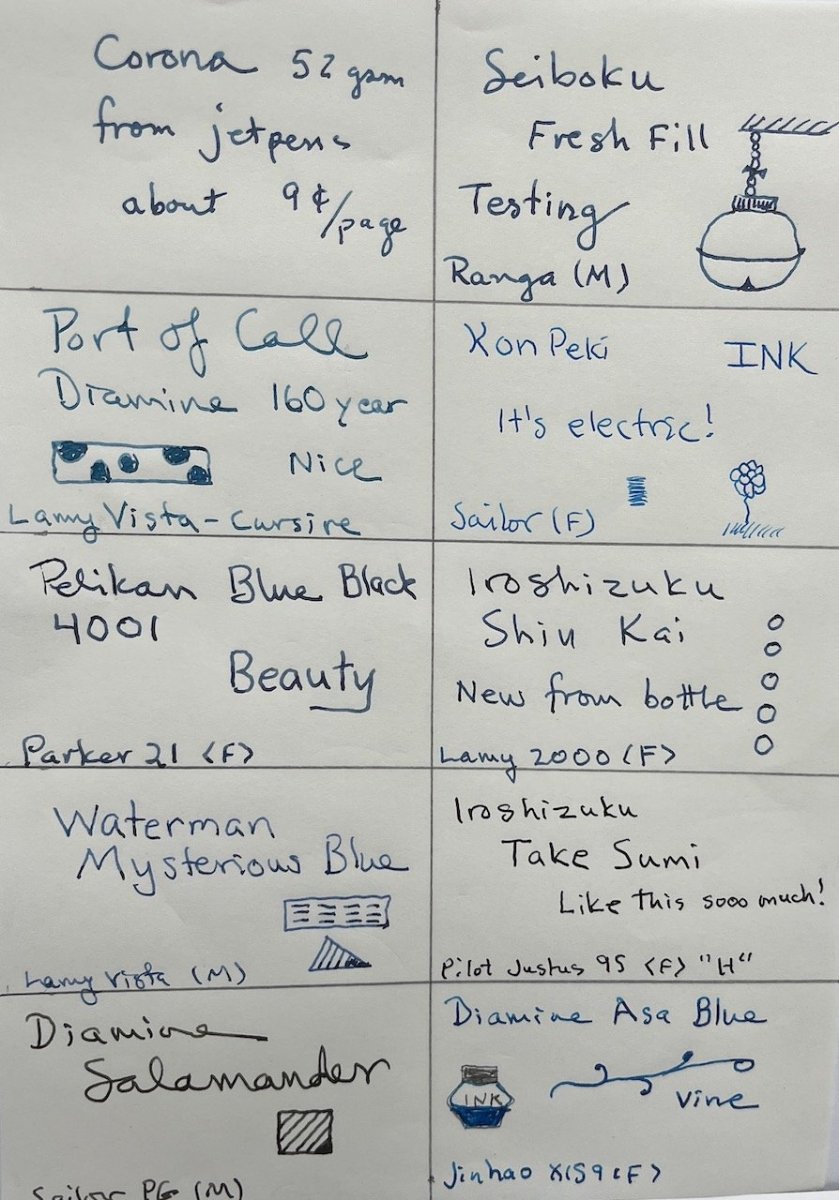 Corona 52 gsm
from jetpens
about 9¢/page
Seiboku
Fresh Fill
Testing
Ranga (M)
Port of Call
Diamine 160 year
Nice
Lamy Vista - Cursive
Kon Peki INK
It's electric!
Sailor (F)
Pelikan Blue Black
4001
Beauty
Parker 21 <F>
Iroshizuku
Shin Kai
New from bottle
Lamy 2000 <F>
Waterman
Mysterious Blue
Lamy Vista (M)
Iroshizuku
Take Sumi
Like this sooo much!
Pilot Justus 95 <F> "H"
Diamine
Salamander
Sailor PG (M)
Diamine Asa Blue
INK
Vine
Jinhao X159 <F>